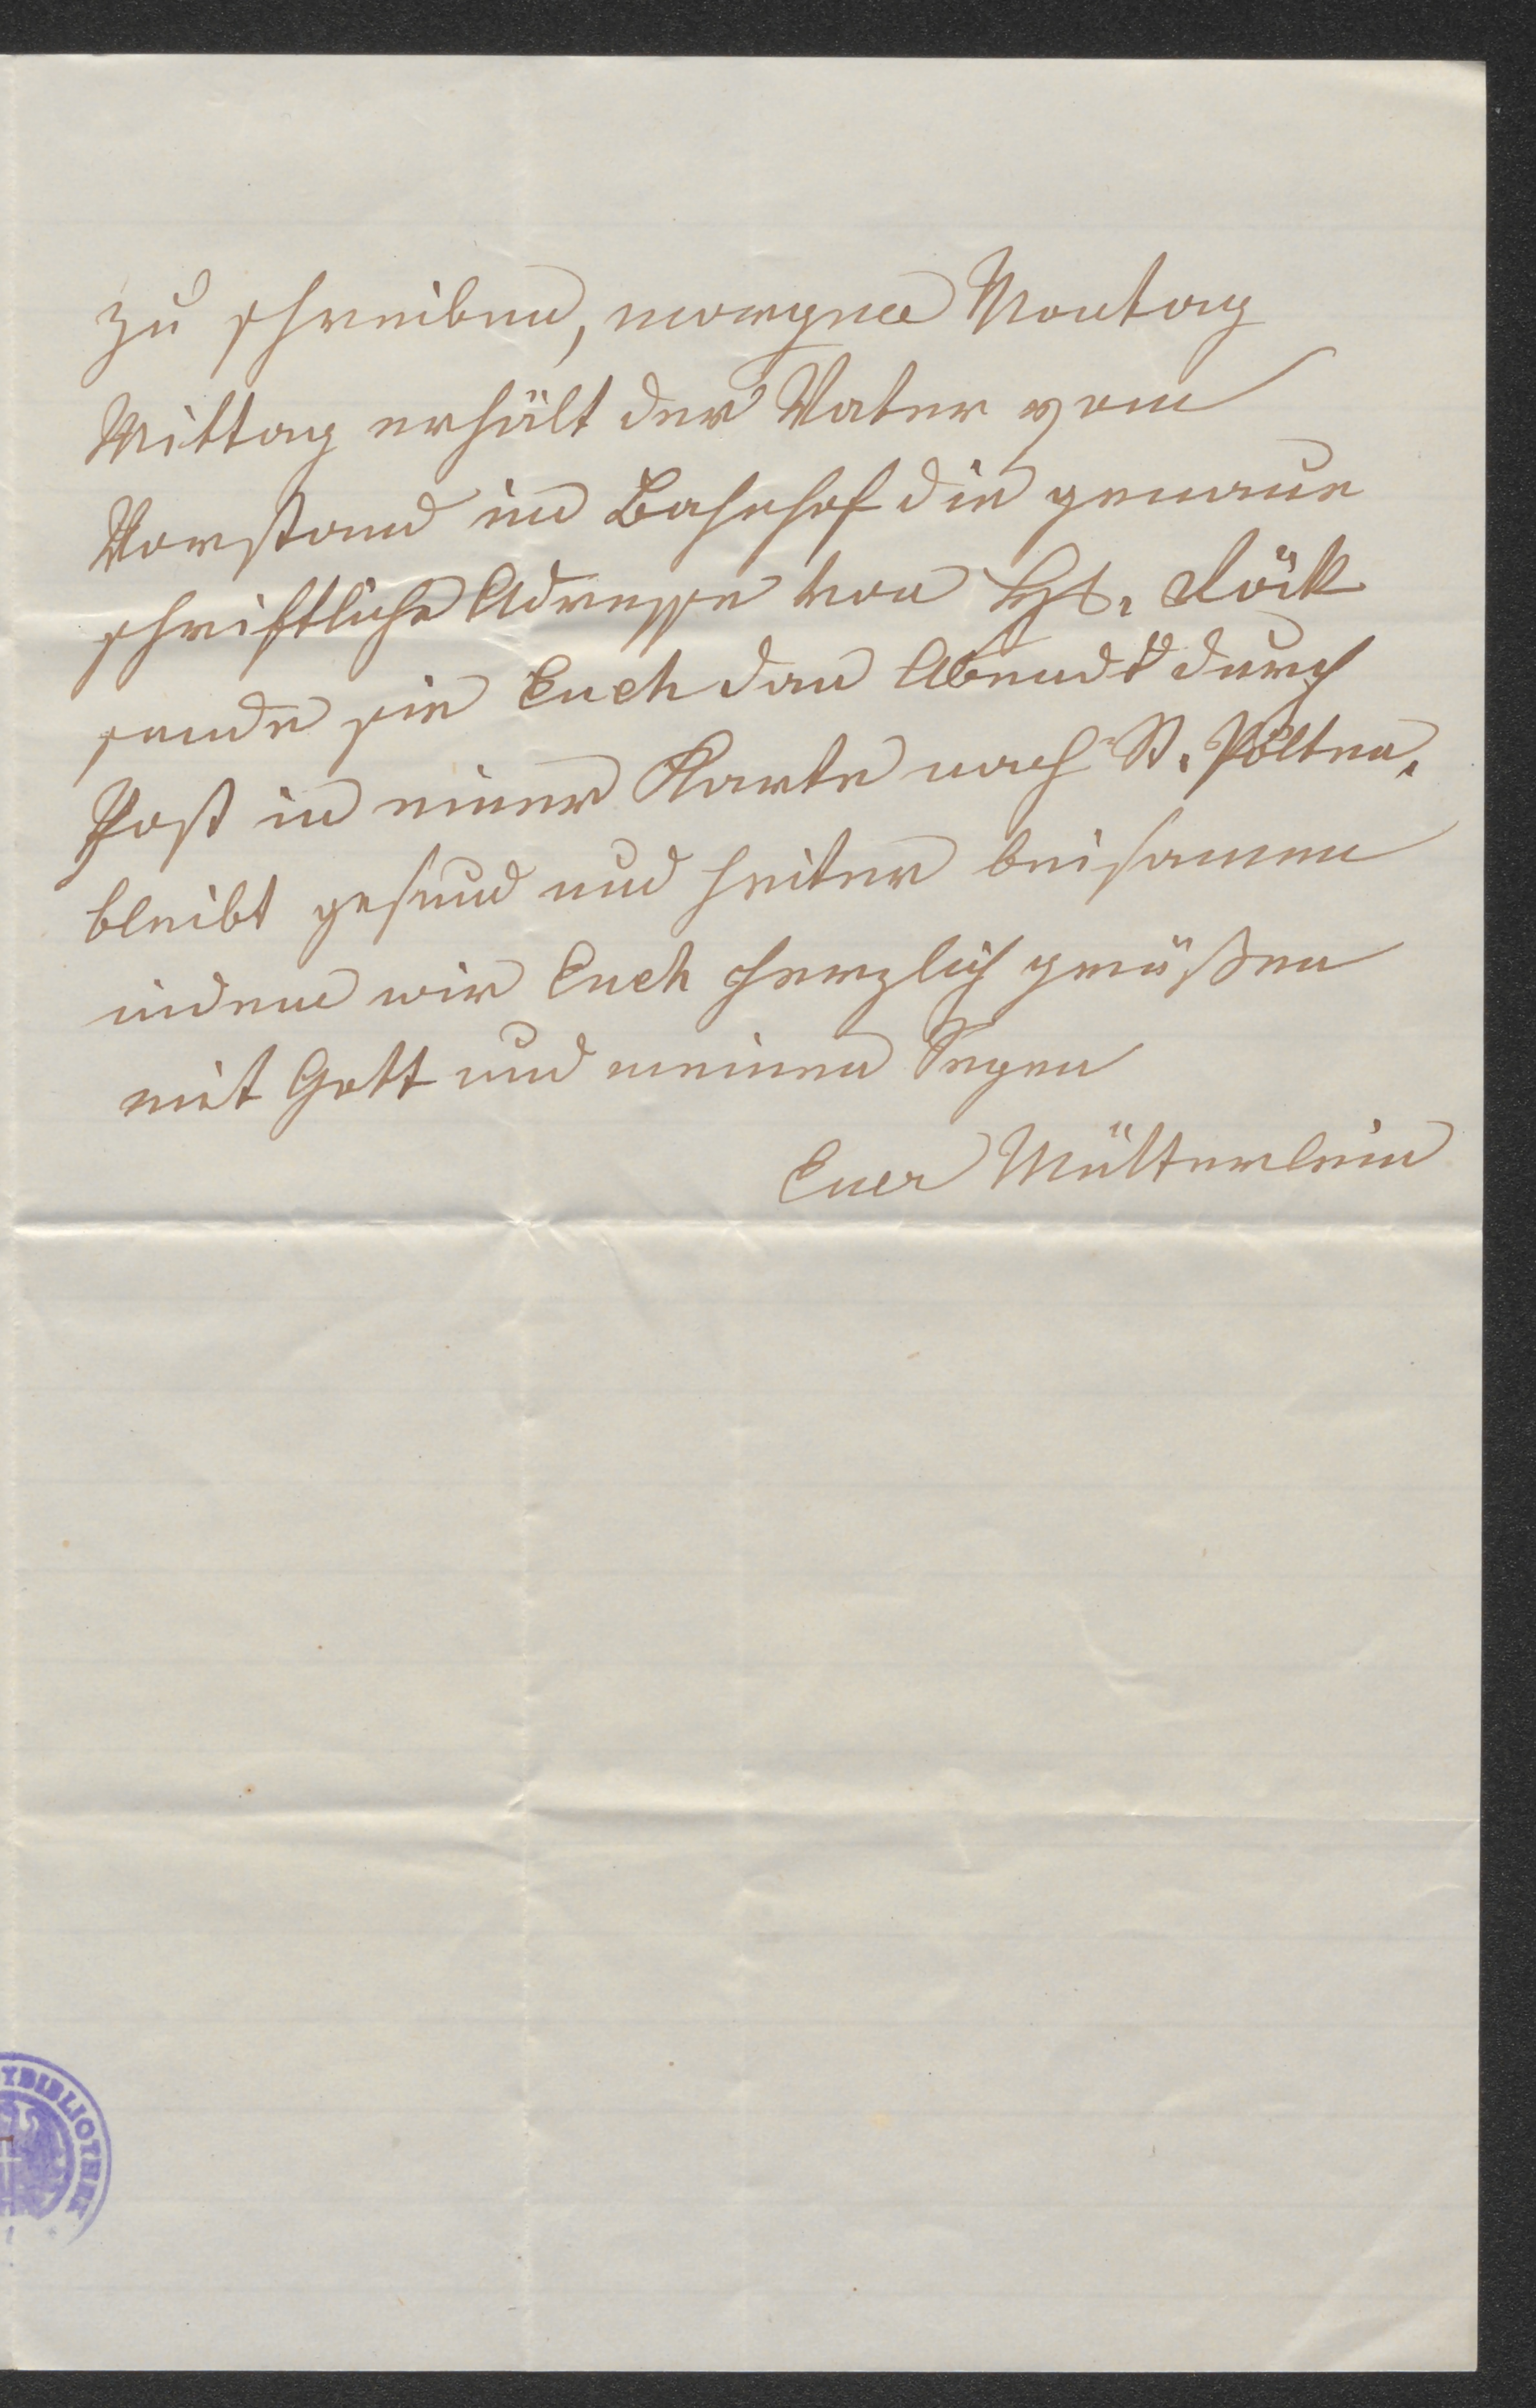 zu schreiben, morgen Montag
Mittag erhält der Vater vom
Vorstand im Bahnhof die genaue
schriftliche Adresse von Röck
sende sie Euch dan Abends durch
Post in einer Karte nach St. Pölten.
bleibt gesund und heiter beisamen
indem wir Euch herzlich grüßen
mit Gott und meinen Segen
Euer Mütterlein
BIBLIOTHEK